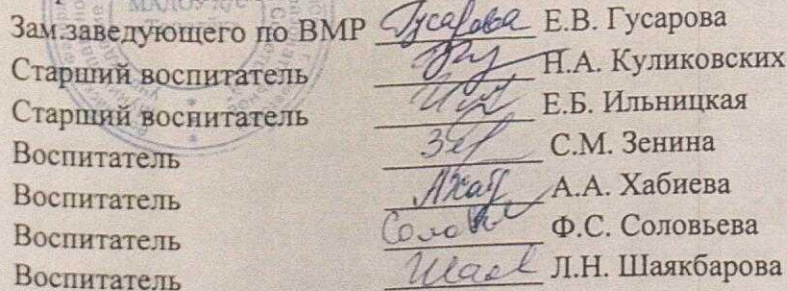 Зам.заведующего по ВМР Гусарова Е.В. Гусарова
Старший воспитатель Н.А. Куликовских
Старший воспитатель Е.Б. Ильницкая
Воспитатель С.М. Зенина
Воспитатель А.А. Хабиева
Воспитатель Ф.С. Соловьева
Воспитатель Л.Н. Шаякбарова